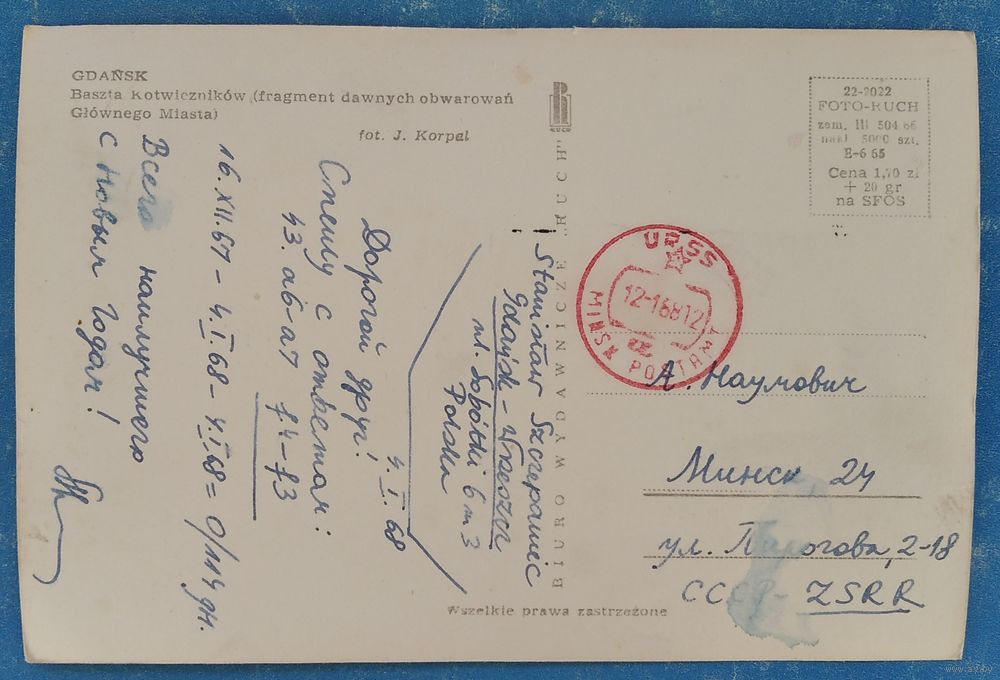 GDAŃSK
Baszta Kotwiczników (fragment dawnych obwarowań
Głównego Miasta)
fot. J. Korpal
RUCH
BIURO WYDAWNICZE „RUCH”
22-2022
FOTO-RUCH
zam. III 504 66
nakł 5000 szt.
E-6 65
Cena 1,70 zł
+ 20 gr
na SFOS
Stanisław Szczepaniec
Gdańsk - Wrzeszcz
ul. Sobótki 6 m 3
Polska
4. I. 68
Дорогой друг!
Спешу с ответом:
43. a6-a7 f4-f3
16.XII.67 - 4.I.68 - 4.I.68 = 0/14 дн.
Всего наилучшего
с Новым Годом!
URSS
12-1 68 12
MINSK POSTAMT
А. Наумович
Минск 24
ул. 2-18
СССР - ZSRR
Wszelkie prawa zastrzeżone